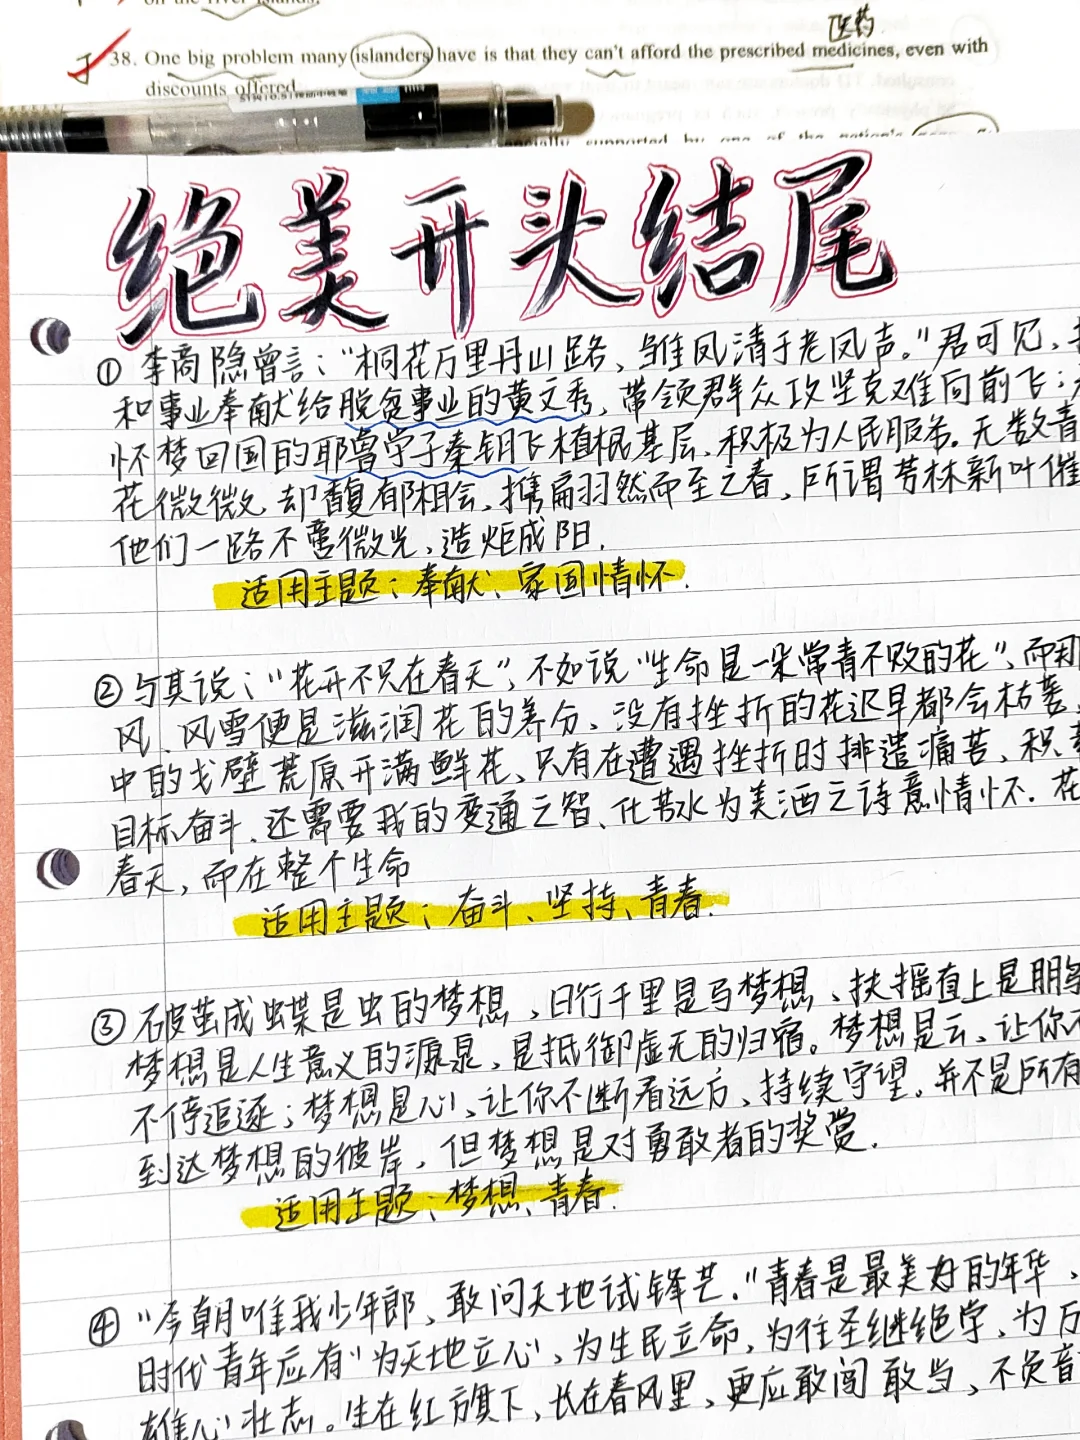 on the river islands.
医药
38. One big problem many islanders have is that they can't afford the prescribed medicines, even with
discounts offered
supported by one of the nation's
绝美开头结尾
① 李商隐曾言："桐花万里丹山路、雏凤清于老凤声。"君可见,
和事业奉献给脱贫事业的黄文秀, 带领群众攻坚克难向前飞;
怀梦回国的耶鲁学子秦玥飞植根基层、积极为人民服务. 无数青
花微微、却馥郁相会、携扁羽然而至之春, 所谓芳林新叶催
他们一路不啻微光、造炬成阳.
适用主题: 奉献、家国情怀.
② 与其说: "花开不只在春天", 不如说 "生命是一朵常青不败的花", 而
风、风雪便是滋润花的养分、没有挫折的花迟早都会枯萎,
中的戈壁荒原开满鲜花、只有在遭遇挫折时排遣痛苦、积
目标奋斗、还需要我的变通之智、化苦水为美酒之诗意情怀. 花
春天, 而在整个生命
适用主题: 奋斗、坚持、青春.
③ 破茧成蝶是虫的梦想, 日行千里是马梦想、扶摇直上是鹏
梦想是人生意义的源泉、是抵御虚无的归宿。梦想是云、让你
不停追逐; 梦想是心、让你不断看远方、持续守望。并不是所有
到达梦想的彼岸, 但梦想是对勇敢者的奖赏.
适用主题: 梦想、青春.
④ "今朝唯我少年郎、敢问天地试锋芒."青春是最美好的年华、
时代青年应有"为天地立心"、为生民立命, 为往圣继绝学、为万
雄心壮志。生在红旗下、长在春风里、更应敢闯敢当、不负